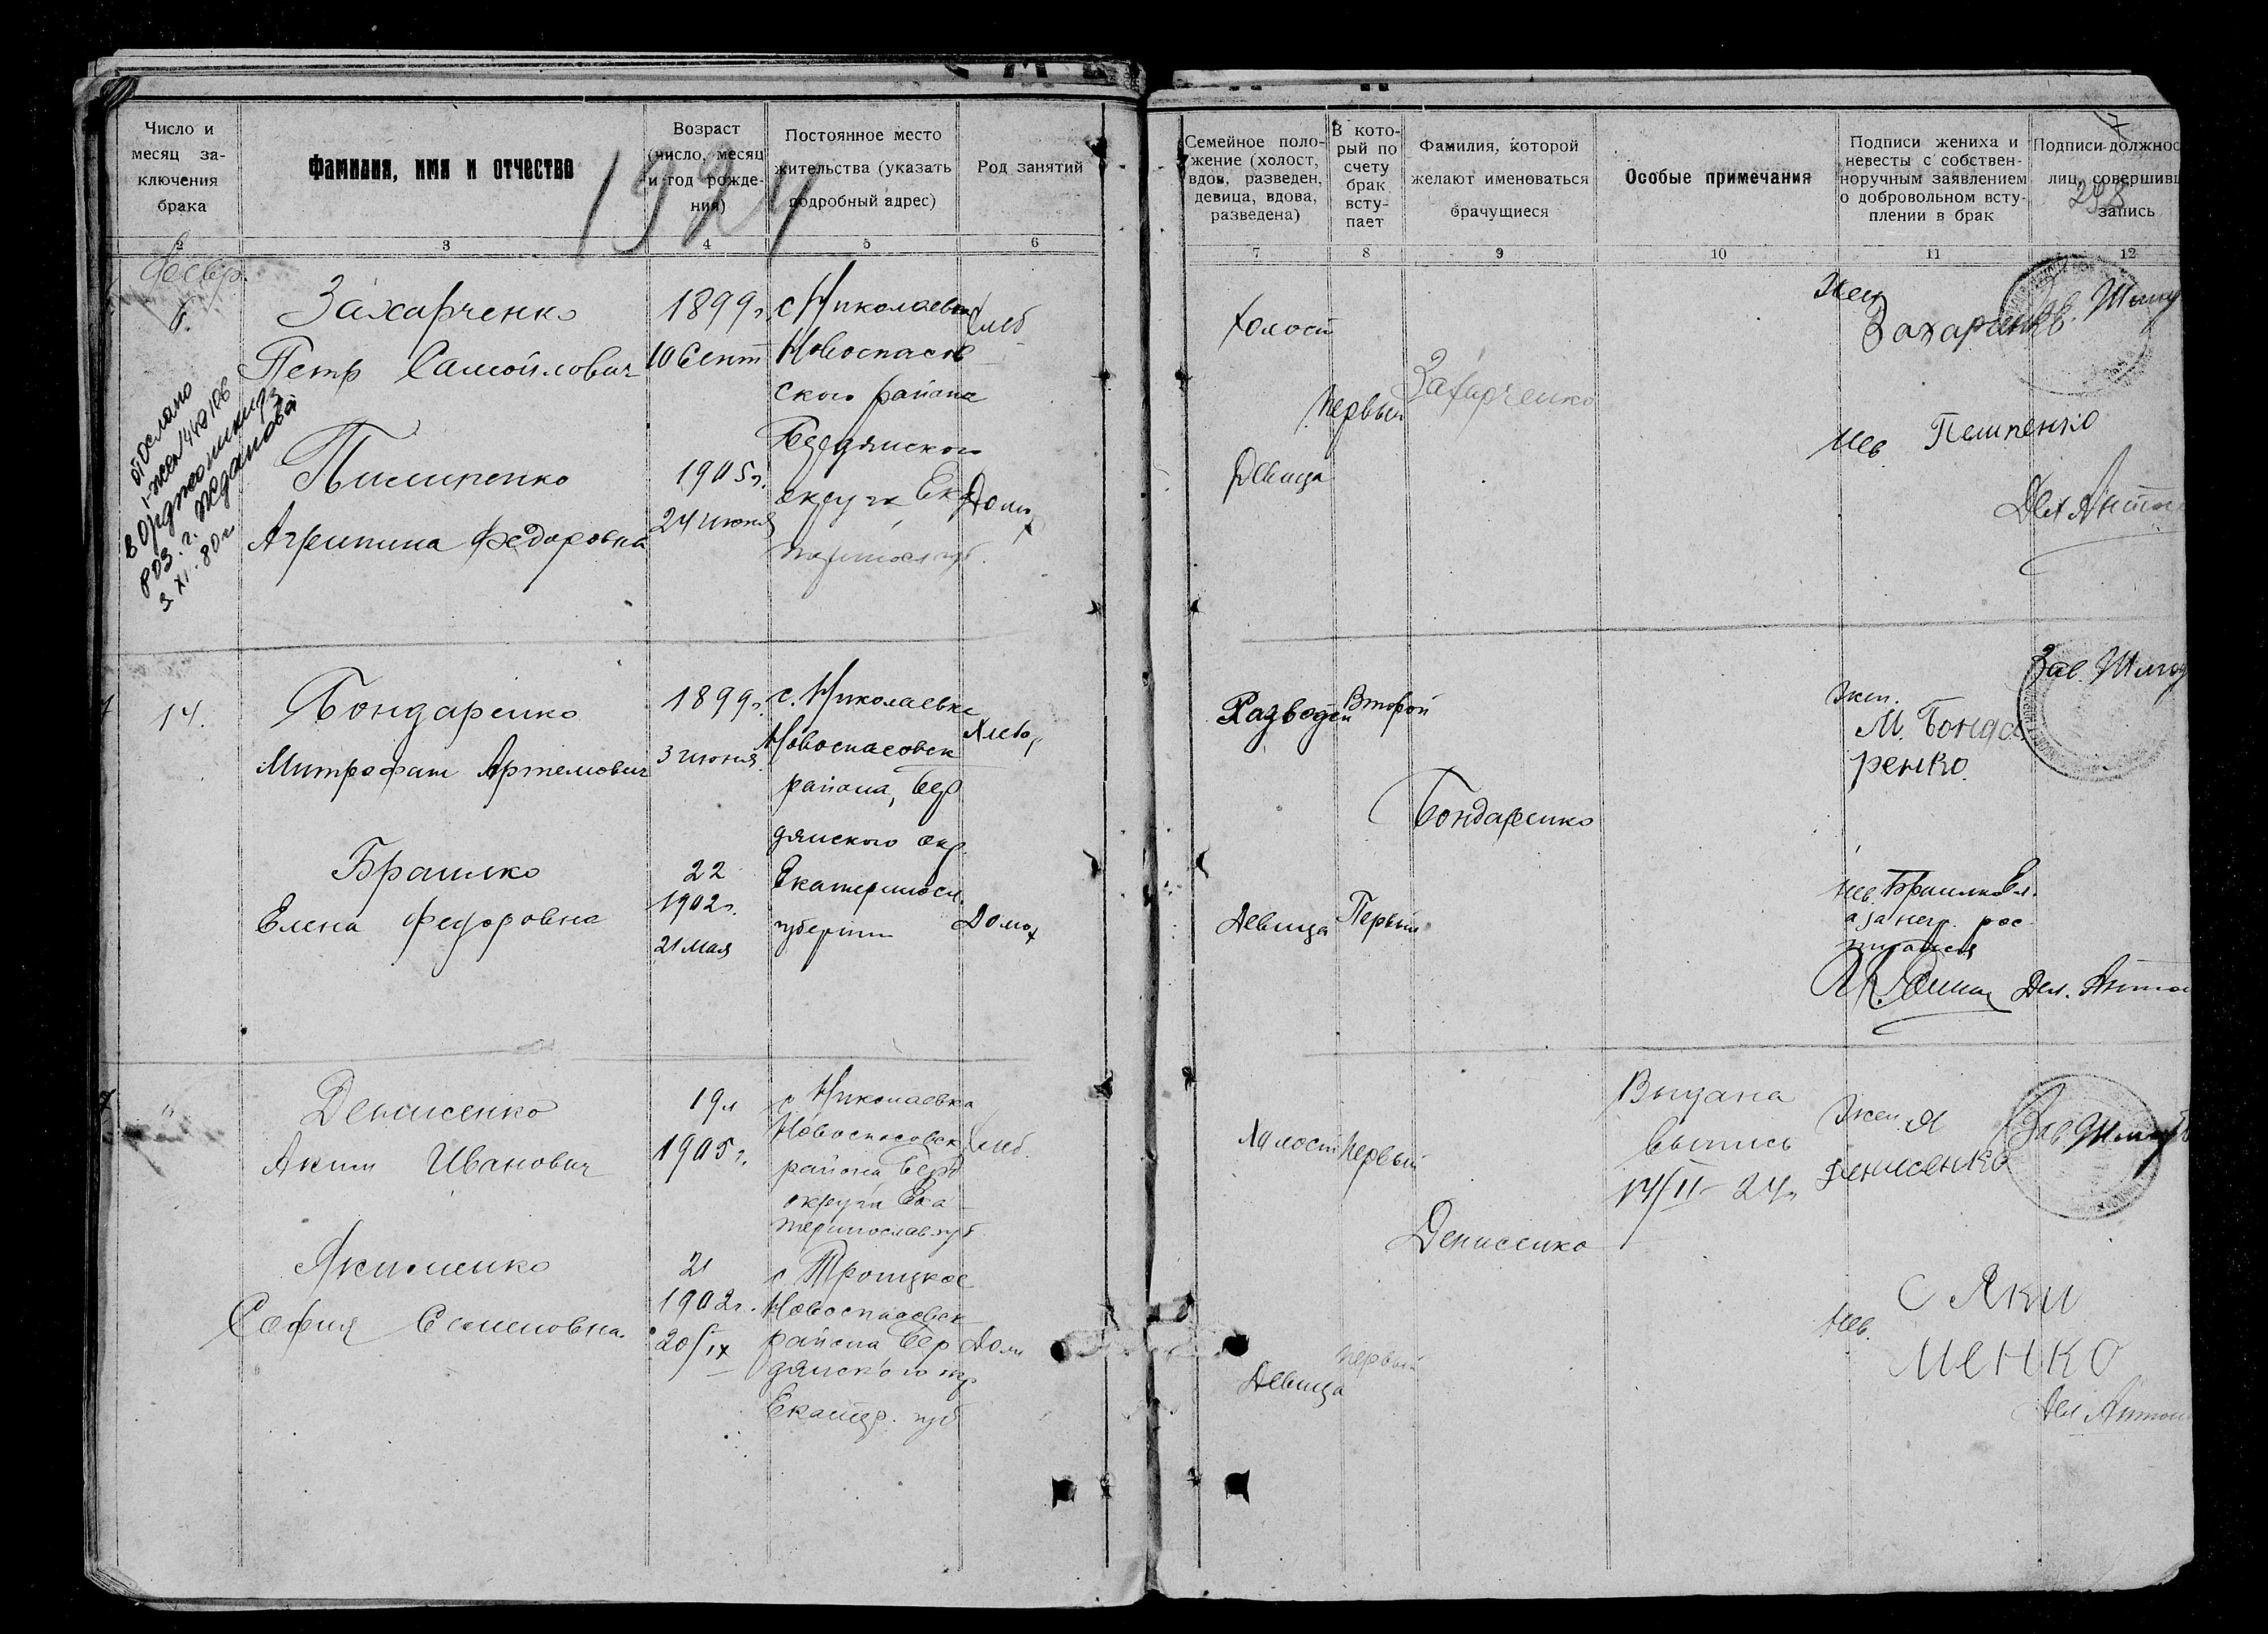 Число и месяц заключения брака
Фамилия, имя и отчество
Возраст (число, месяц и год рождения)
Постоянное место жительства (указать подробный адрес)
Род занятий
1924
2 3 4 5 6
Февр.
6.
Захарченко
Петр Самойлович
1899г.
10 Сент
с Николаевка
Новоспасов
ского района
Бердянского
округа Ека
Хлеб
отослано
в Орджоникидз
роз. г. Жданова
3 XI. 80 г.
Пилипенко
Агрипина Федоровна
1905г.
24 июня
Домо
14.
Бондаренко
Митрофан Артемович
1899г.
3 июня
с. Николаевка
Новоспасовск
района, Бер
дянского окр.
Екатериносл.
губернии
Хлебор
Брашко
Елена Федоровна
22
1902г.
21 мая
Домох
"
Денисенко
Аким Иванович
19л
1905г.
с Николаевка
Новоспасовск
района Берд
округа Ека
теринослав губ
Хлеб.
Якименко
София Семеновна.
21
1902г.
20/IX
с. Троицкое
Новоспасовск
района Бер
дянского окр
Екатер. губ
Дом
Семейное положение (холост, вдов, разведен, девица, вдова, разведена)
В который по счету брак вступает
Фамилия, которой желают именоваться брачущиеся
Особые примечания
Подписи жениха и невесты с собственноручным заявлением о добровольном вступлении в брак
Подписи должнос
лиц, совершивш
запись
298
7 8 9 10 11 12
Холост
Первый
Захарченко
Жен
Захарченко
Зав.
Девица
Нев.
Пелипенко
Разведен
Второй
Жен.
М. Бонда
ренко.
Зав.
Бондаренко
Девица
Первый
Нев.
а за негр. рос
Дел.
Холост
Первый
Выдана
выпись
14/II-24г
Жен. Я
Денисенко
Зав.
Денисенко
Девица
первый
Нев.
С Яки
менко
Дел